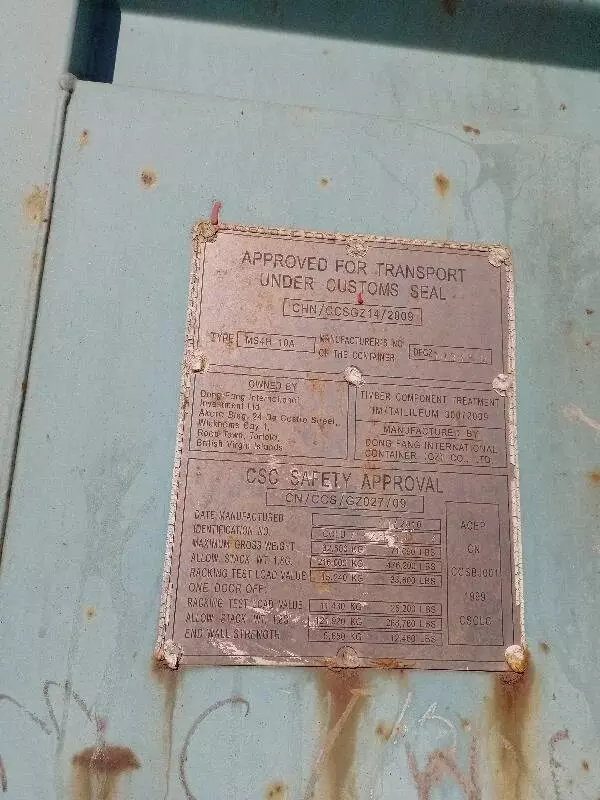 APPROVED FOR TRANSPORT
UNDER CUSTOMS SEAL
CHN/CCSGZ14/2009
TYPE MS4H-10A MANUFACTURER'S NO.
OF THE CONTAINER
OWNED BY
Dong Fang International
Investment Ltd.
Akara Bldg. 24 De Castro Street,
Wickhams Cay 1,
Road Town, Tortola,
British Virgin Islands
TIMBER COMPONENT TREATMENT
IM/TAILILEUM 300/2009
MANUFACTURED BY
DONG FANG INTERNATIONAL
CONTAINER (GZ) CO., LTD.
CSC SAFETY APPROVAL
CN/CCS/GZ027/09
DATE MANUFACTURED
IDENTIFICATION NO.
MAXIMUM GROSS WEIGHT 32,500 KG LBS
ALLOW STACK WT 1.8G. 216,000 KG 476,200 LBS
RACKING TEST LOAD VALUE 15,240 KG 33,600 LBS
ONE DOOR OFF:
RACKING TEST LOAD VALUE 11,430 KG 25,200 LBS
ALLOW STACK WT 1.8G 121,920 KG 268,780 LBS
END WALL STRENGTH 5,650 KG 12,460 LBS
ACEP
CN
CCSBJ001
1999
CSCLC